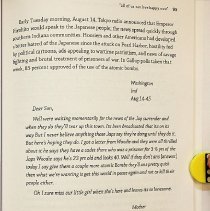 "all of us was too happy now" 93
Early Tuesday morning, August 14, Tokyo radio announced that Emperor
Hirohito would speak to the Japanese people, the news spread quickly through
southern Indiana communities. Hoosiers and other Americans had developed
a hatred of the Japanese since the attack on Pearl Harbor, by
political cartoons, ads appealing to wartime patriotism, and news of savage
fighting and brutal treatment of prisoners of war. In Gallup polls taken that
week, 85 percent approved of the use of the atomic bombs.
Washington
Ind
Aug 14-45
Dear Son,
Well were waiting momentarily for the news of the Jap surrender and
when they do they'll tear up this town. Its been broadcased thar is on its
way But I never believe anything those Japs say they're dang and they do it.
But here's hoping they do. I got a letter from Woodie and they were all thrilled
about it he says they have a cadet there who was a prisoner for 3 ½ yrs of the
Japs Woodie says he's 23 yrs old and looks 40. Well if they don't ans
today I say give them a couple more atomic Bombs they'll be pretty quiet
then what we're wanting is get this world in peace again and not so kill their
people either.
Oh I sure miss our little girl when she's here and leaves its so lonesome.
Mother